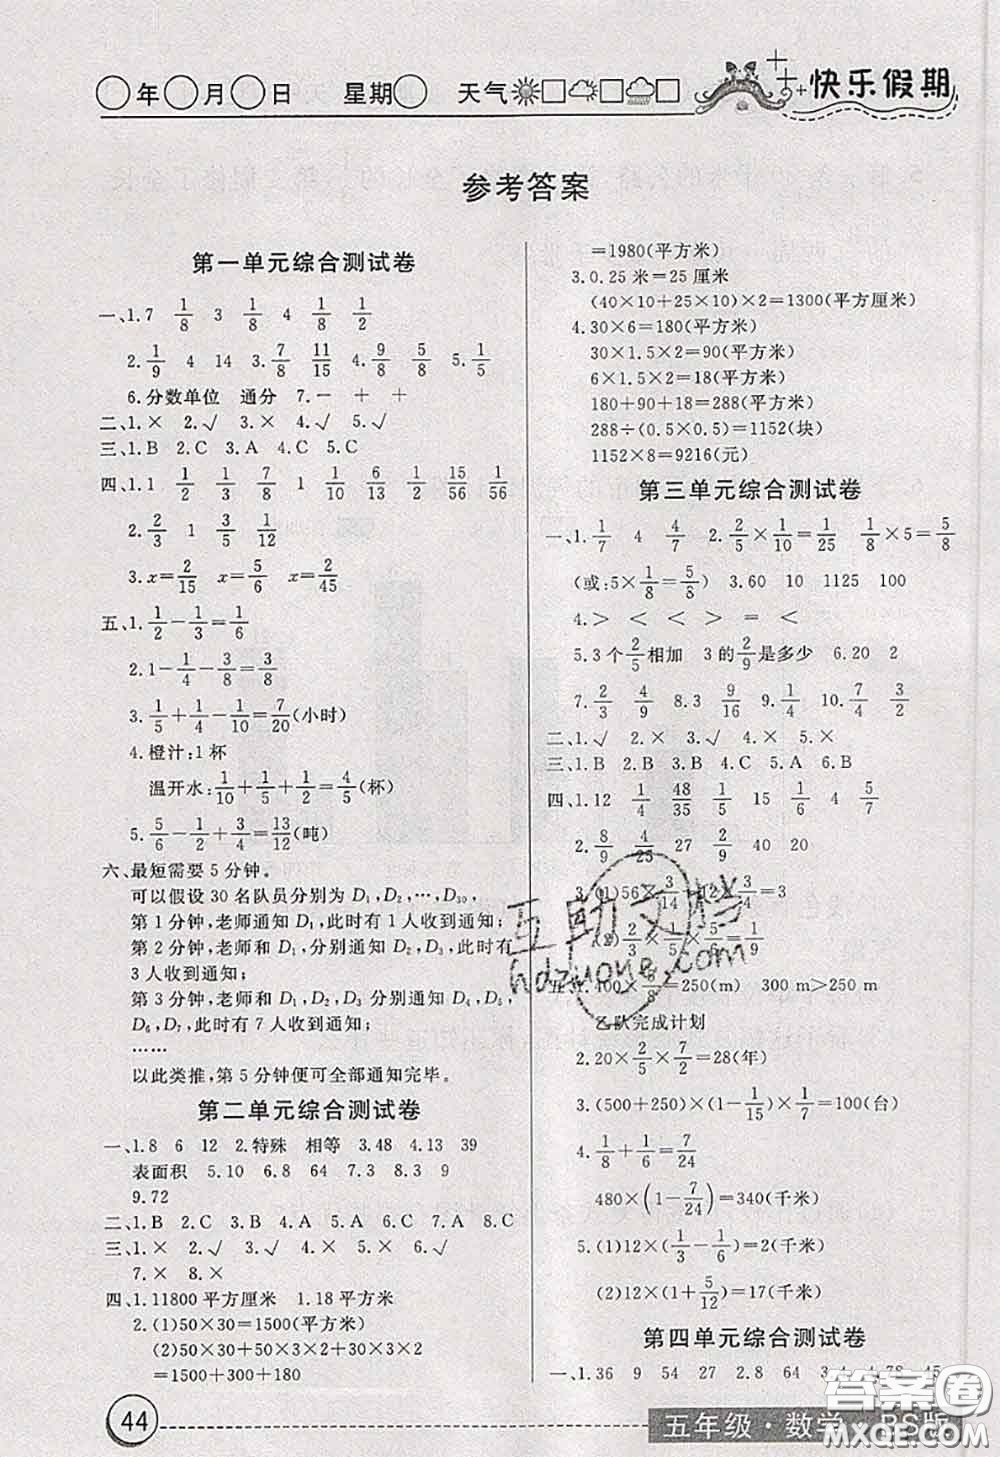 ○年○月○日 星期○ 天气□□□ 快乐假期
参考答案
第一单元综合测试卷
一、1.7 1/8 3 1/8 4 1/8 1/2
2.1/9 4 14 3.7/8 11/15 4.9/8 5/8 5.1/5
6.分数单位 通分 7.一 + +
二、1.× 2.√ 3.× 4.√ 5.√
三、1.B 2.C 3.A 4.C 5.C
四、1.1 1/2 1/3 7/8 1 1/10 6/13 1/2 15/56 1/56
2.1/3 1 3/10 1/12
3.x=2/15 x=5/6 x=2/45
五、1.1/2-1/3=1/6
2.1-1/4-3/8=3/8
3.1/5+1/4-1/10=7/20(小时)
4.橙汁:1杯
温开水:1/10+1/5+1/2=4/5(杯)
5.5/6-1/2+3/4=13/12(吨)
六、最短需要5分钟。
可以假设30名队员分别为D₁,D₂,…,D₃₀,
第1分钟,老师通知D₁,此时有1人收到通知;
第2分钟,老师和D₁,分别通知D₂,D₃,此时有
3人收到通知;
第3分钟,老师和D₁,D₂,D₃分别通知D₄,D₅,
D₆,D₇,此时有7人收到通知;
……
以此类推,第5分钟便可全部通知完毕。
第二单元综合测试卷
一、1.8 6 12 2.特殊 相等 3.48 4.13 39
表面积 5.10 6.8 64 7.3 8.3 9
9.72
二、1.B 2.C 3.B 4.A 5.A 6.C 7.A 8.C
三、1.× 2.√ 3.√ 4.× 5.× 6.√
7.× 8.×
四、1.11800平方厘米 1.18平方米
2.(1)50×30=1500(平方米)
(2)50×30+50×3×2+30×3×2
=1500+300+180
=1980(平方米)
3.0.25米=25厘米
(40×10+25×10)×2=1300(平方厘米)
4.30×6=180(平方米)
30×1.5×2=90(平方米)
6×1.5×2=18(平方米)
180+90+18=288(平方米)
288÷(0.5×0.5)=1152(块)
1152×8=9216(元)
第三单元综合测试卷
一、1.1/7 4 4/7 2.2/5×1/10=1/25 1/8×5=5/8
(或:5×1/8=5/8) 3.60 10 1125 100
4.> < > = <
5.3个2/5相加 3的2/9是多少 6.20 2
7.2/3 4/9 8.3 9/16 9.1/4 10.7/4 3/2
二、1.√ 2.× 3.√ 4.× 5.×
三、1.B 2.C 3.B 4.C 5.A 6.B
四、1.12 1/4 48/35 1/5 15 1/4 1/6 5/2
2.8/9 4/25 27 2/9 40 20
3.(1)56×3/14×1/4=3
(2)2/3×1/5×5/6=1/9
五、1.400×5/8=250(m) 300 m>250 m
乙队完成计划
2.20×2/5×7/2=28(年)
3.(500+250)×(1-1/15)×1/7=100(台)
4.1/8+1/6=7/24
480×(1-7/24)=340(千米)
5.(1)12×(1/3-1/6)=2(千米)
(2)12×(1+5/12)=17(千米)
第四单元综合测试卷
一、1.36 9 54 27 2.8 64 3.4 4.78 45
44 五年级·数学 BS版
互助文档
hdzuone.com
答案圈
MXQE.COM